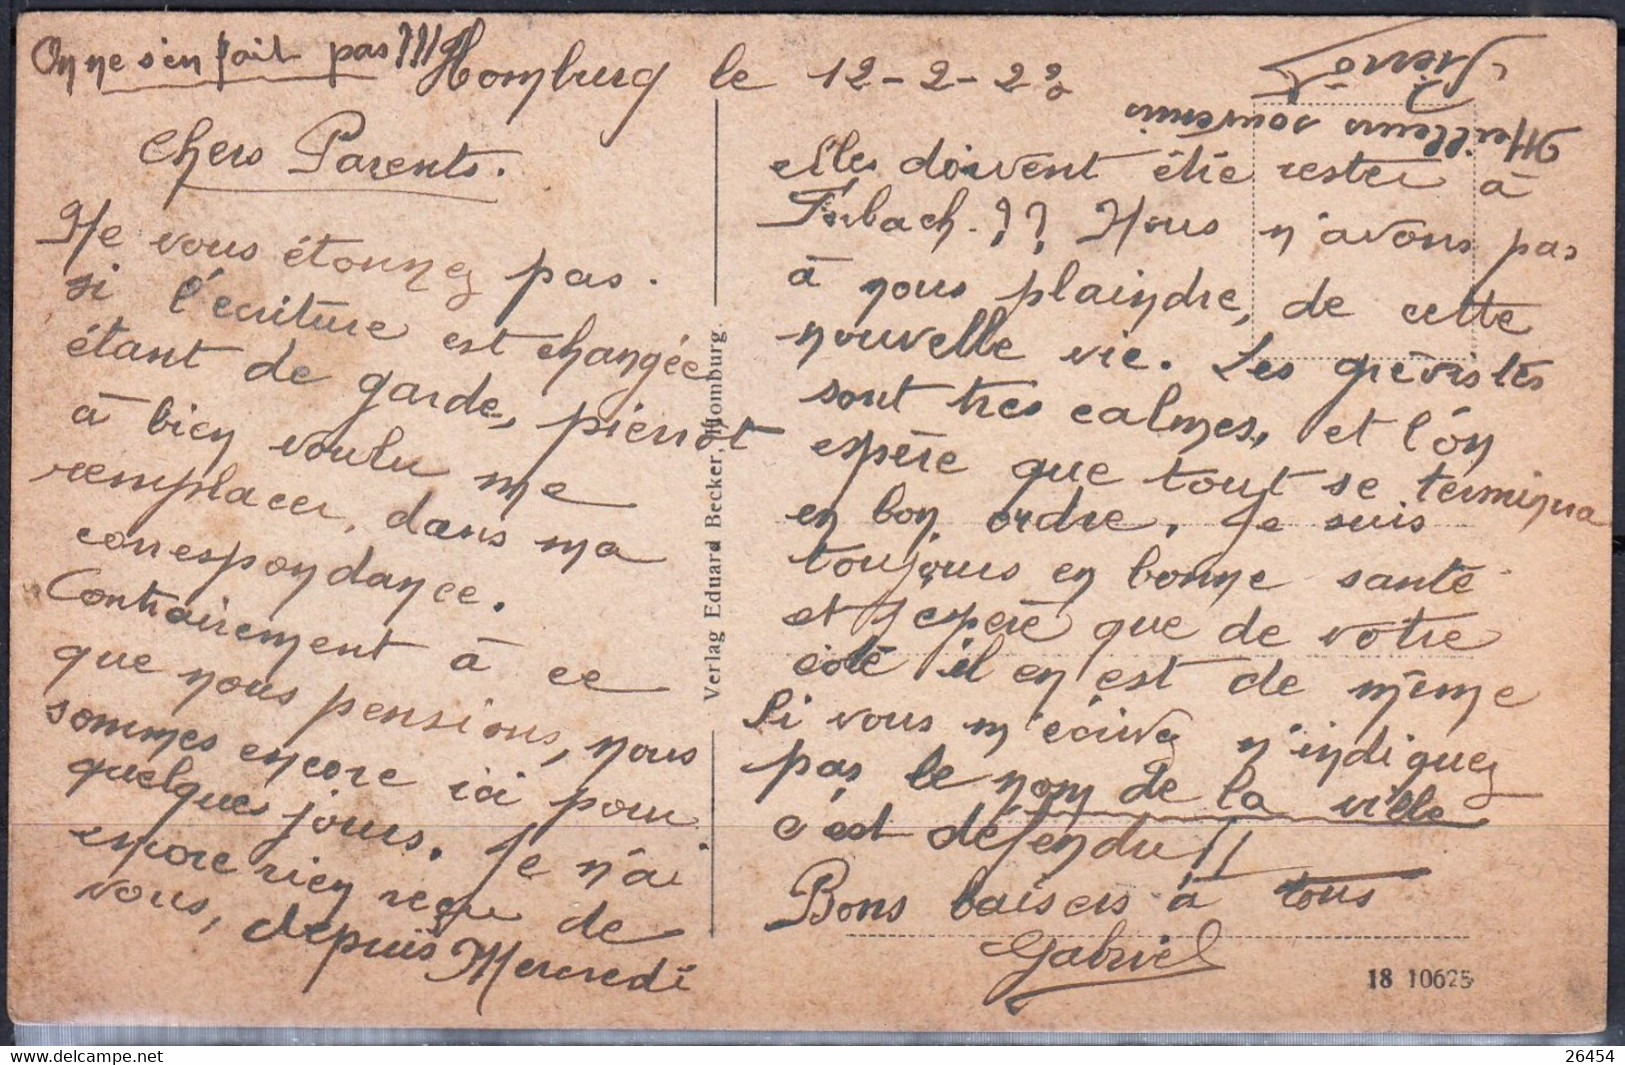 On ne s'en fait pas !!!
Homburg le 12-2-22
Chers Parents.
Ne vous étonnez pas.
si l'ecriture est changée
étant de garde, pierrot
à bien voulu me
remplacer, dans ma
correspondance.
Contrairement à ce
que nous pensions, nous
sommes encore ici pour
quelque jours. Je n'ai
encore rien reçu de
vous, depuis Mercredi
elles doivent étre rester à
Forbach. ?? Nous n'avons pas
à nous plaindre, de cette
nouvelle vie. Les grévistes
sont tres calmes, et l'on
espère que tout se terminera
en bon ordre. Je suis
toujours en bonne santé
et j'esperé que de votre
coté il en est de même
Si vous m'écrivez n'indiquez
pas le nom de la ville
c'est défendu !!
Bons baisers à tous
Gabriel
Meilleurs souvenirs
Pierrot
Verlag Eduard Becker, Homburg.
18 10625
www.delcampe.net
the_seller
26454